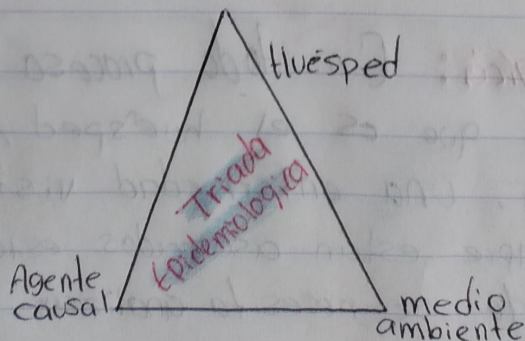 Huésped
Triada
Epidemiologica
Agente
causal
medio
ambiente